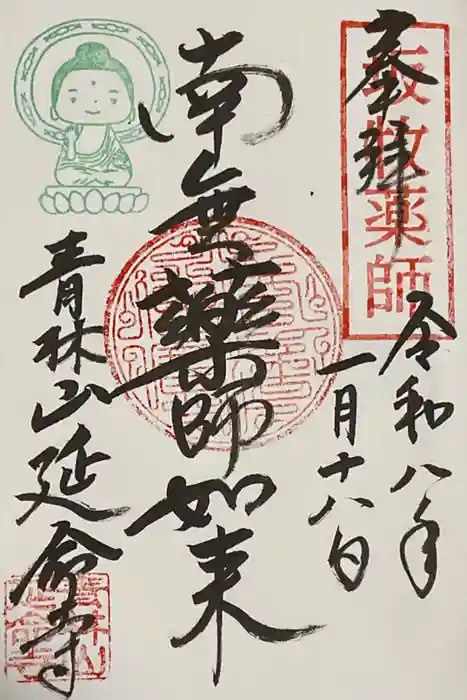 奉拝
坂牧薬師
令和八年
一月十八日
南無薬師如来
青林山延命寺